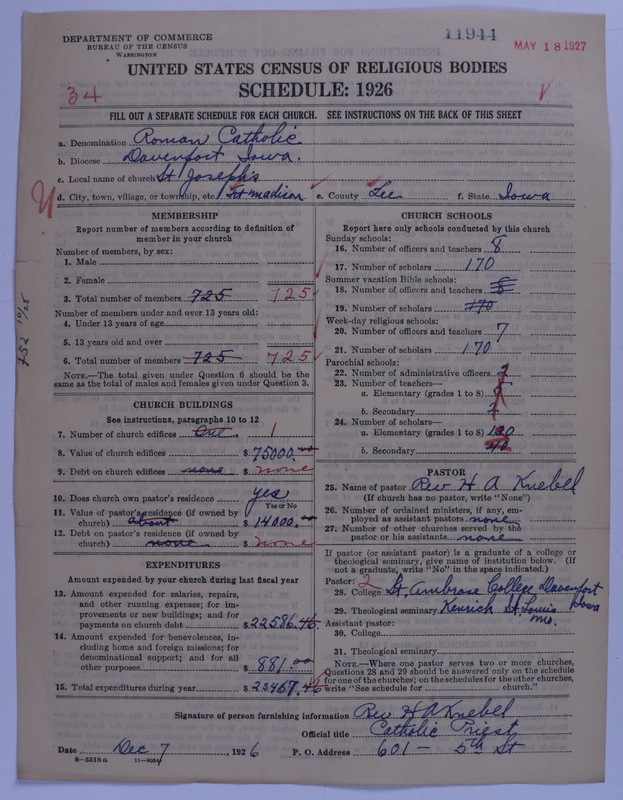 DEPARTMENT OF COMMERCE
BUREAU OF THE CENSUS
WASHINGTON
11944
MAY 18 1927
UNITED STATES CENSUS OF RELIGIOUS BODIES
SCHEDULE: 1926
34
FILL OUT A SEPARATE SCHEDULE FOR EACH CHURCH. SEE INSTRUCTIONS ON THE BACK OF THIS SHEET
a. Denomination Roman Catholic
b. Diocese Davenport Iowa.
c. Local name of church St Joseph's
d. City, town, village, or township, etc. Ft Madison e. County Lee f. State Iowa
MEMBERSHIP
Report number of members according to definition of member in your church
Number of members, by sex:
1. Male
2. Female
3. Total number of members 725 725
Number of members under and over 13 years old:
4. Under 13 years of age
5. 13 years old and over
6. Total number of members 725 725
NOTE.—The total given under Question 6 should be the same as the total of males and females given under Question 3.
752 10/25
CHURCH BUILDINGS
See instructions, paragraphs 10 to 12
7. Number of church edifices One 1
8. Value of church edifices $ 75000.00
9. Debt on church edifices none $ none
10. Does church own pastor's residence yes
Yes or No
11. Value of pastor's residence (if owned by church) about $ 14000.00
12. Debt on pastor's residence (if owned by church) none $ none
EXPENDITURES
Amount expended by your church during last fiscal year
13. Amount expended for salaries, repairs, and other running expenses; for improvements or new buildings; and for payments on church debt $ 22586.46
14. Amount expended for benevolences, including home and foreign missions; for denominational support; and for all other purposes $ 881.00
15. Total expenditures during year $ 23467.46
CHURCH SCHOOLS
Report here only schools conducted by this church
Sunday schools:
16. Number of officers and teachers 8
17. Number of scholars 170
Summer vacation Bible schools:
18. Number of officers and teachers
19. Number of scholars 170
Week-day religious schools:
20. Number of officers and teachers 7
21. Number of scholars 170
Parochial schools:
22. Number of administrative officers
23. Number of teachers—
a. Elementary (grades 1 to 8)
b. Secondary
24. Number of scholars—
a. Elementary (grades 1 to 8)
b. Secondary
PASTOR
25. Name of pastor Rev H A Knebel
(If church has no pastor, write "None")
26. Number of ordained ministers, if any, employed as assistant pastors none
27. Number of other churches served by the pastor or his assistants none
If pastor (or assistant pastor) is a graduate of a college or theological seminary, give name of institution below. (If not a graduate, write "No" in the space indicated.)
Pastor: 2
28. College St. Ambrose College Davenport Iowa
29. Theological seminary Kenrick St. Louis Mo.
Assistant pastor:
30. College
31. Theological seminary
NOTE.—Where one pastor serves two or more churches, Questions 28 and 29 should be answered only on the schedule for one of the churches; on the schedules for the other churches, write "See schedule for church."
Signature of person furnishing information Rev H A Knebel
Official title Catholic Priest
Date Dec 7, 1926 P. O. Address 601 - 5th St
8—5518a